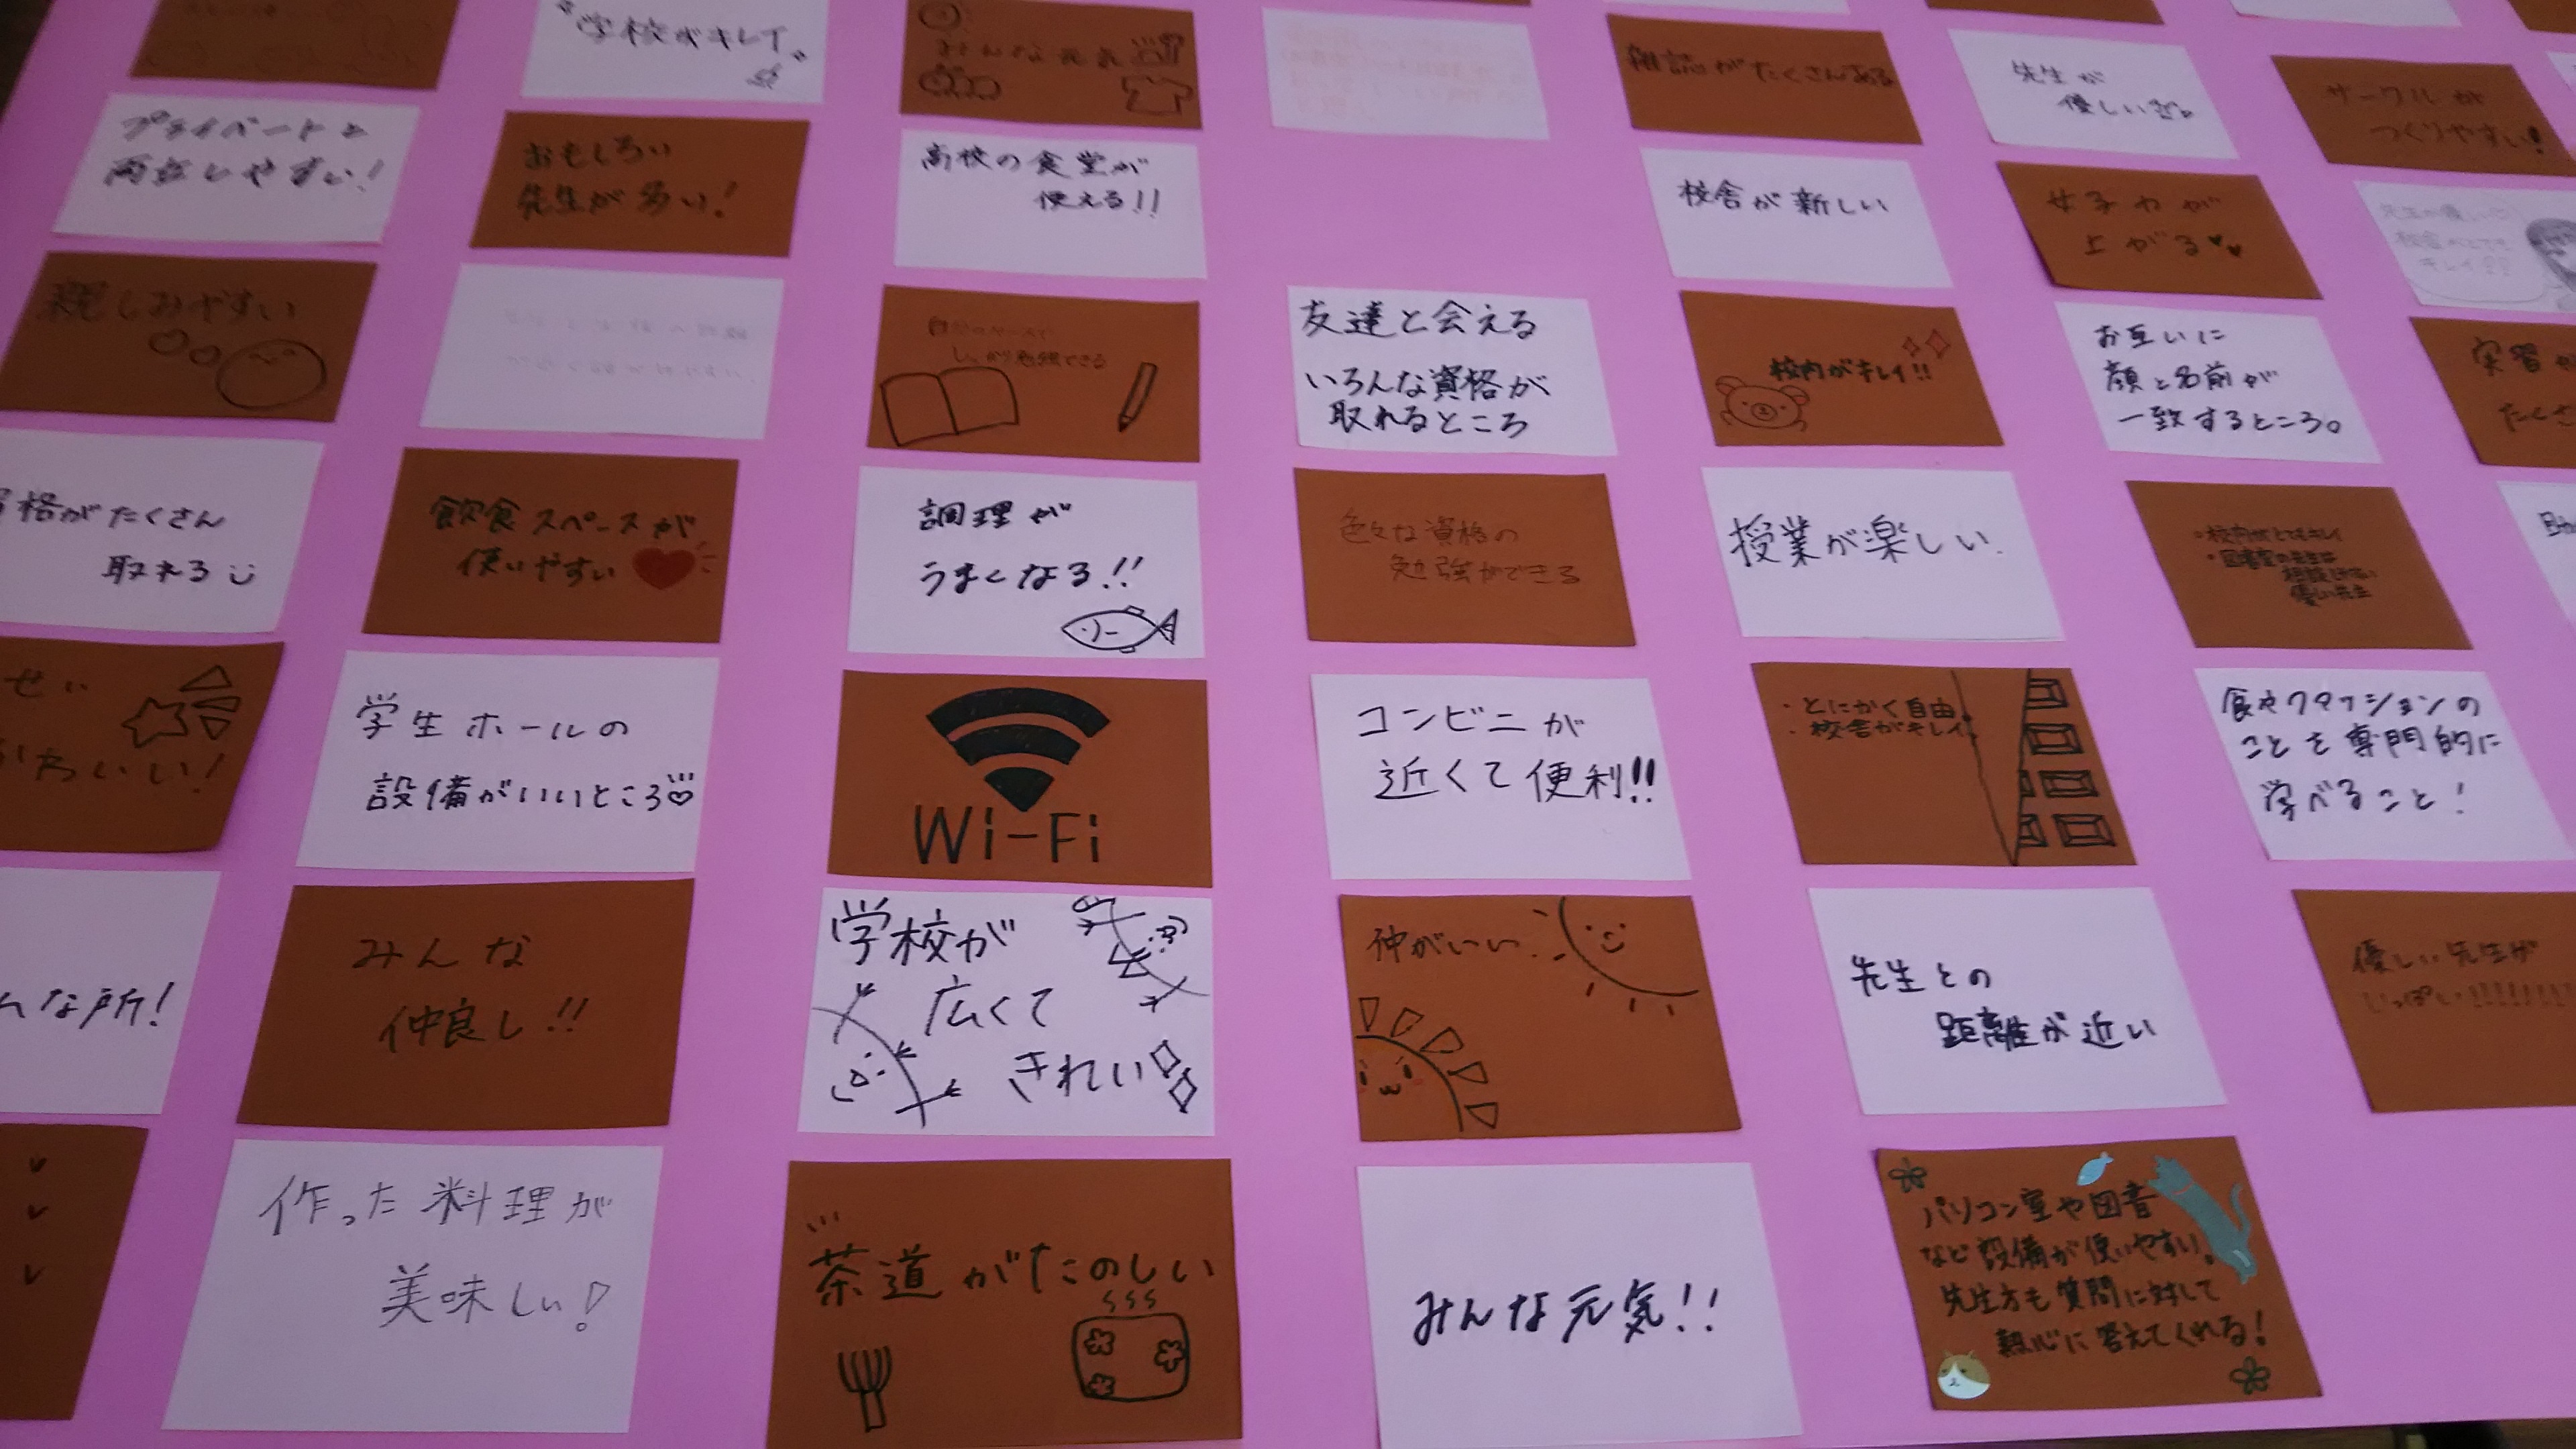 学校がキレイ
みんな元気
雑誌がたくさんある
先生が
優しい
サークルが
つくりやすい!
プライベートと
両立しやすい!
おもしろい
先生が多い!
高校の食堂が
使える!!
校舎が新しい
女子力が
上がる
親しみやすい
自分のペースで
しっかり勉強できる
友達と会える
いろんな資格が
取れるところ
校内がキレイ!!
お互いに
顔と名前が
一致するところ。
実習
たくさ
格がたくさん
取れる
飲食スペースが
使いやすい
調理が
うまくなる!!
色々な資格の
勉強ができる
授業が楽しい.
・校内がとてもキレイ
優しい先生
せい
かわいい!
学生ホールの
設備がいいところ
Wi-Fi
コンビニが
近くて便利!!
・とにかく自由
・校舎がキレイ
食やファッションの
ことを専門的に
学べること!
んな所!
みんな
仲良し!!
学校が
広くて
きれい
仲がいい.
先生との
距離が近い
優しい先生が
いっぱい!!!!!!!!
作った料理が
美味しい!
茶道がたのしい
みんな元気!!
パソコン室や図書
など設備が使いやすい。
先生方も質問に対して
熱心に答えてくれる!